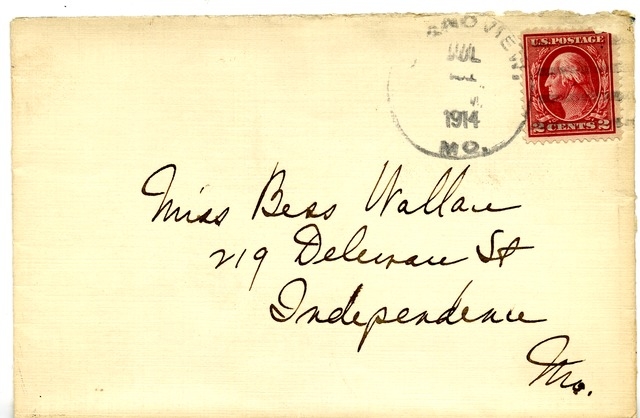 ANDVIEW
JUL
1914
MO.
U.S. POSTAGE
2 CENTS 2
Miss Bess Wallace
219 Delaware St
Independence
Mo.